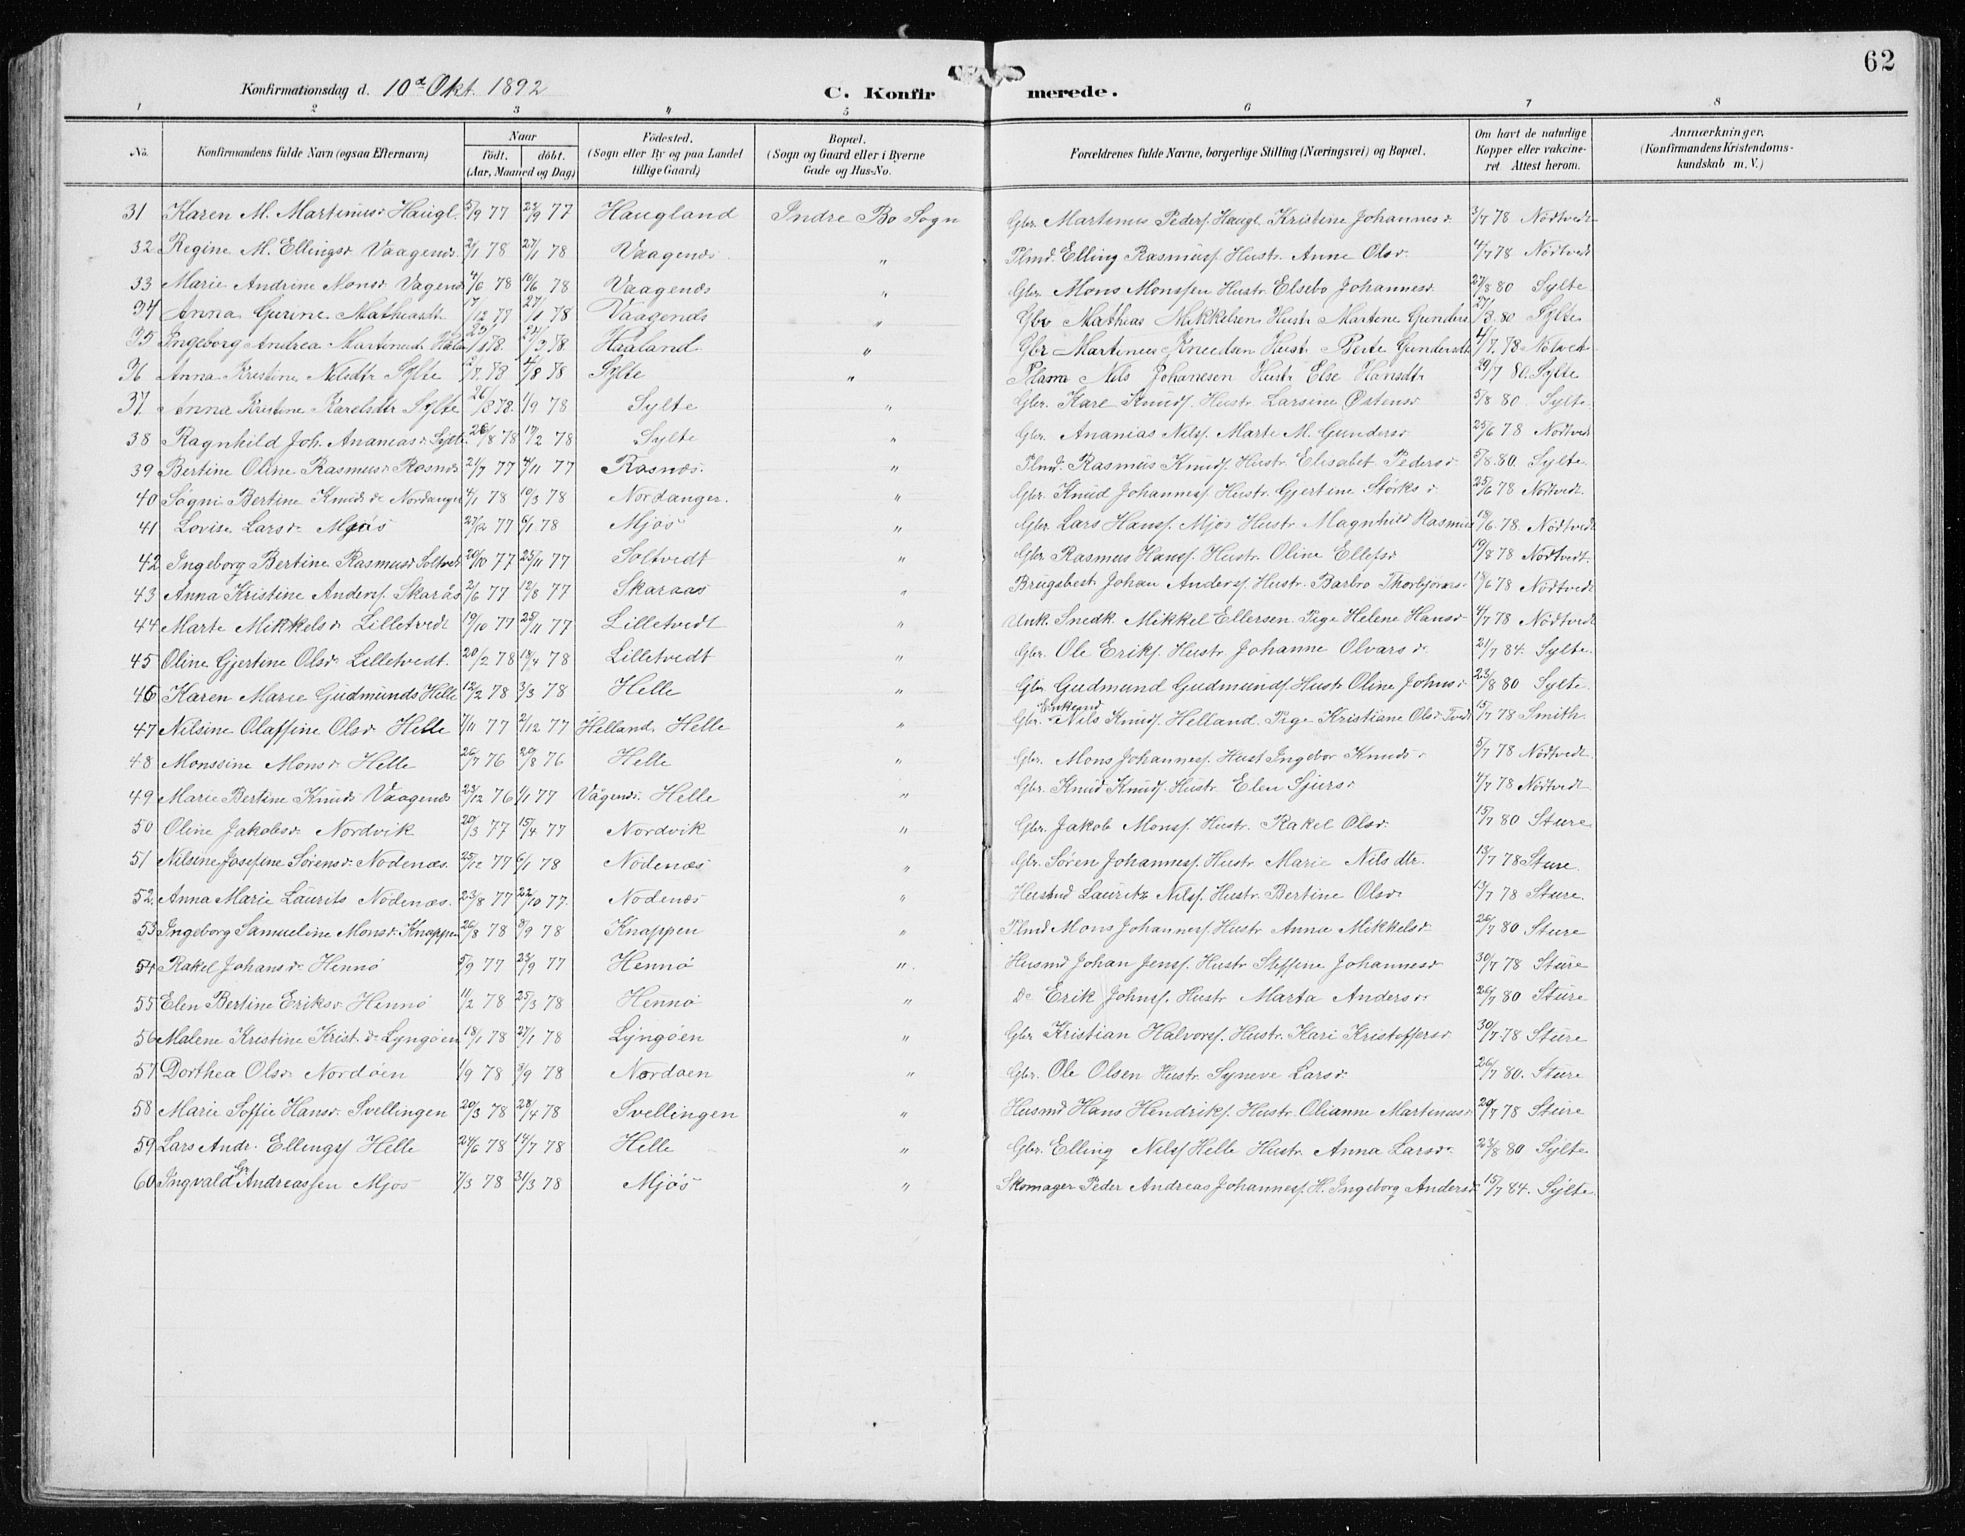 62
Konfirmationsdag d. 10de Okt. 1892 C. Konfirmerede.
1 2 3 4 5 6 7 8
No. Konfirmandens fulde Navn (ogsaa Efternavn) Naar födt. döbt. (Aar, Maaned og Dag) Födested. (Sogn eller By og paa Landet tillige Gaard) Bopæl. (Sogn og Gaard eller i Byerne Gade og Hus-No. Forældrenes fulde Navne, borgerlige Stilling (Næringsvei) og Bopæl. Om havt de naturlige Kopper eller vakcineret Attest herom. Anmærkninger. (Konfirmandens Kristendomskundskab m. V.)
31 Karen M. Martinusd. Haugl. 5/9 77 23/9 77 Haugland Indre Bo Sogn Gbr. Martinus Peders. Haugl. Kristine Johannesd 3/7 78 Nödtvedt
32 Regine M. Ellingsd Vaagenes 2/1 78 27/1 78 Vaagenes " Plmd. Elling Rasmuss. Hustr. Anne Olsd. 4/7 78 Nödtvedt
33 Marie Andrine Monsd Vagenes 4/6 78 10/6 78 Vaagenes " Gbr. Mons Monssen Hustr. Elsebo Johannesd 27/8 80 Sylte
34 Anna Gurine Mathiasdt 17/12 77 27/1 78 Vaagenes " Gbr Mathias Mikkelsen Hustr Martene Gunders 27/8 80 Sylte
35 Ingeborg Andrea Martinusd Haaland 78 24/3 78 Haaland " Gbr Martinus Knudsen Hust Berte Gundersdt 4/7 78 Nötvedt
36 Anna Kristine Nilsdtr Sylte 2/7 78 4/8 78 Sylte " Plam Nils Johanesen Hustr Else Hansdt 29/7 80 Sylte
37 Anna Kristine Karelsdtr Sylte 26/8 78 1/9 78 Sylte " Gbr. Karl Knuds. Hustr. Larsine Østensd 5/8 80 Sylte
38 Ragnhild Joh. Ananiasd. Sylte 26/8 78 17/2 78 Sylte " Gbr. Ananias Nilss. Marte M. Gundersd 25/6 78 Nödtvedt
39 Bertine Oline Rasmusd. Rosnes 21/7 77 4/11 77 Rasnæs. " Plmd. Rasmus Knuds. Hustr. Elisabet Pedersd. 5/8 80. Sylte
40 Sogni Bertine Knudsd. Nordanger 4/1 78 10/3 78 Nordanger. " Gbr. Knud Johanness. Hustr. Gjertine Størksd 25/6 78 Nödtvedt
41 Lovise Larsd. Mjøs 27/12 77 6/1 78 Mjøs " Gbr. Lars Hanss. Mjøs Hustr. Magnhild Rasmus 18/6 78. Nödtvedt
42 Ingeborg Bertine Rasmusd Soltvedt 20/10 77 25/11 77 Soltvedt " Gbr. Rasmus Hanss. Hustr. Oline Ellefsd 19/8 78 Nödtvedt.
43 Anna Kristine Anderss. Skarås 21/6 77 12/8 77 Skaraas " Brugsbest Johan Anderss. Hustr. Barbro Thorbjørns 18/6 78 Nödtvedt
44 Marte Mikkelsd Lilletvedt 19/10 77 25/11 77 Lilletvedt " Unk. Snedk. Mikkel Ellersen. Pige Helene Hansd 4/7 78 Nödtvedt
45 Oline Gjertine Olsd. Lilletvedt. 20/2 78 14/4 78 Lilletvedt " Gbr. Ole Eriks. Hustr. Johanne Olvarsd. 21/7 84. Sylte
46 Karen Marie Gudmunds Helle 12/2 78 3/3 78 Helle " Gbr. Gudmund Gudmunds. Hustr Oline Johnsd 23/8 80 Sylte
47 Nilsine Olaffine Olsd Helle 7/11 77 2/12 77 Helland. Helle " Gbr. Enkemd Nils Knuds. Helland. Pige Kristiane Olsd. Tvedt 15/7 78 Smith.
48 Monssine Monsd Helle 26/7 76 20/8 76 Helle " Gbr. Mons Johanness. Hust Ingebor Knudsd 5/7 78 Nödtvedt
49 Marie Bertine Knuds Vaagenes 23/12 76 1/1 77 Vågenes. Helle " Gbr. Knud Knuds. Hustr. Elen Sjursd 4/7 78 Nödtvedt
50 Oline Jakobsd. Nordvik 20/3 77 15/4 77 Nordvik " Gbr. Jakob Monss. Hustr. Rakel Olsd. 15/7 80 Sture
51 Nilsine Josefine Sørensd. Nodenæs. 25/12 77 6/1 78 Nodenæs " Gbr. Søren Johanness. Hustr. Marie Nilsdtr. 13/7 78 Sture.
52 Anna Marie Laurits Nodenæs. 23/8 77 22/10 77. Nodenæs " Husmd Lauritz Nilss. Hustr. Bertine Olsd 13/7 78 Sture.
53 Ingeborg Samueline Monsd. Knappen 26/8 78 8/9 78 Knappen " Plmd Mons Johanness. Hustr Anna Mikkelsd 26/7 80 Sture
54 Rakel Johansd. Hennø 5/9 77 23/9 77 Hennø " Husmd Johan Jenss. Hustr Steffine Johannesd 30/7 78 Sture
55 Elen Bertine Eriksd Hennø 11/2 78 25/3 78 Hennø " Do Erik Johns. Hustr Marta Andersd. 26/7 80 Sture
56 Malene Kristine Krist.d. Lyngøen 18/1 78 27/1 78 Lyngøen " Gbr Kristian Halvors. Hustr. Kari Kristoffersd. 30/7 78 Sture
57 Dorthea Olsd Nordøen 1/9 78 8/9 78 Nordøen " Gbr. Ole Olsen Hustr Syneve Larsd. 26/7 80. Sture
58 Marie Soffie Hansd. Svellingen 20/3 78 28/4 78 Svellingen " Husmd Hans Hendriks. Hustr. Olianne Martinusd 29/7 78 Sture
59 Lars Andr. Ellings. Helle 24/6 78 14/7 78 Helle " Gbr. Elling Nilss Helle Hustr. Anna Larsd. 23/8 80 Sylte
60 Ingvald Gr. Andreassen Mjøs 7/3 78 31/3 78 Mjøs " Skomager Peder Andreas Johanness. H. Ingeborg Andersd 15/7 84. Sylte